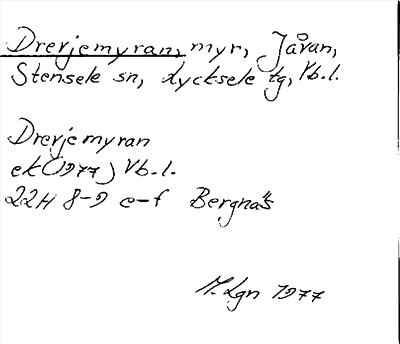 Drevjemyran, myr, Jåvan,
Stensele sn, Lycksele tg, Vb.l.
Drevjemyran
ek (1977) Vb.l.
22H 8-9 e-f Bergnäs
M. Lgn 1977